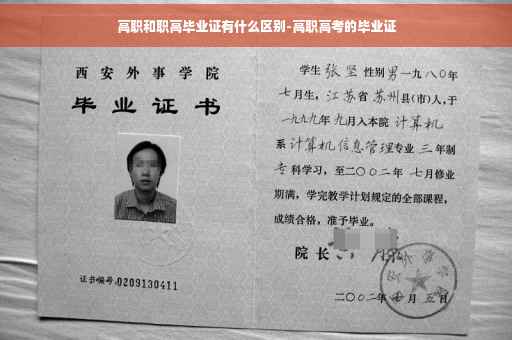 高职和职高毕业证有什么区别-高职高考的毕业证
西安外事学院
毕业证书
证书编号:0209130411
学生 张坚 性别 男 一九八〇年
七月生，江苏省 苏州县(市)人，于
一九九九年 九月入本院 计算机
系 计算机信息管理专业 三 年制
专科学习，至二〇〇二年 七月修业
期满，学完教学计划规定的全部课程，
成绩合格，准予毕业。
院长
二〇〇二年 月 五日